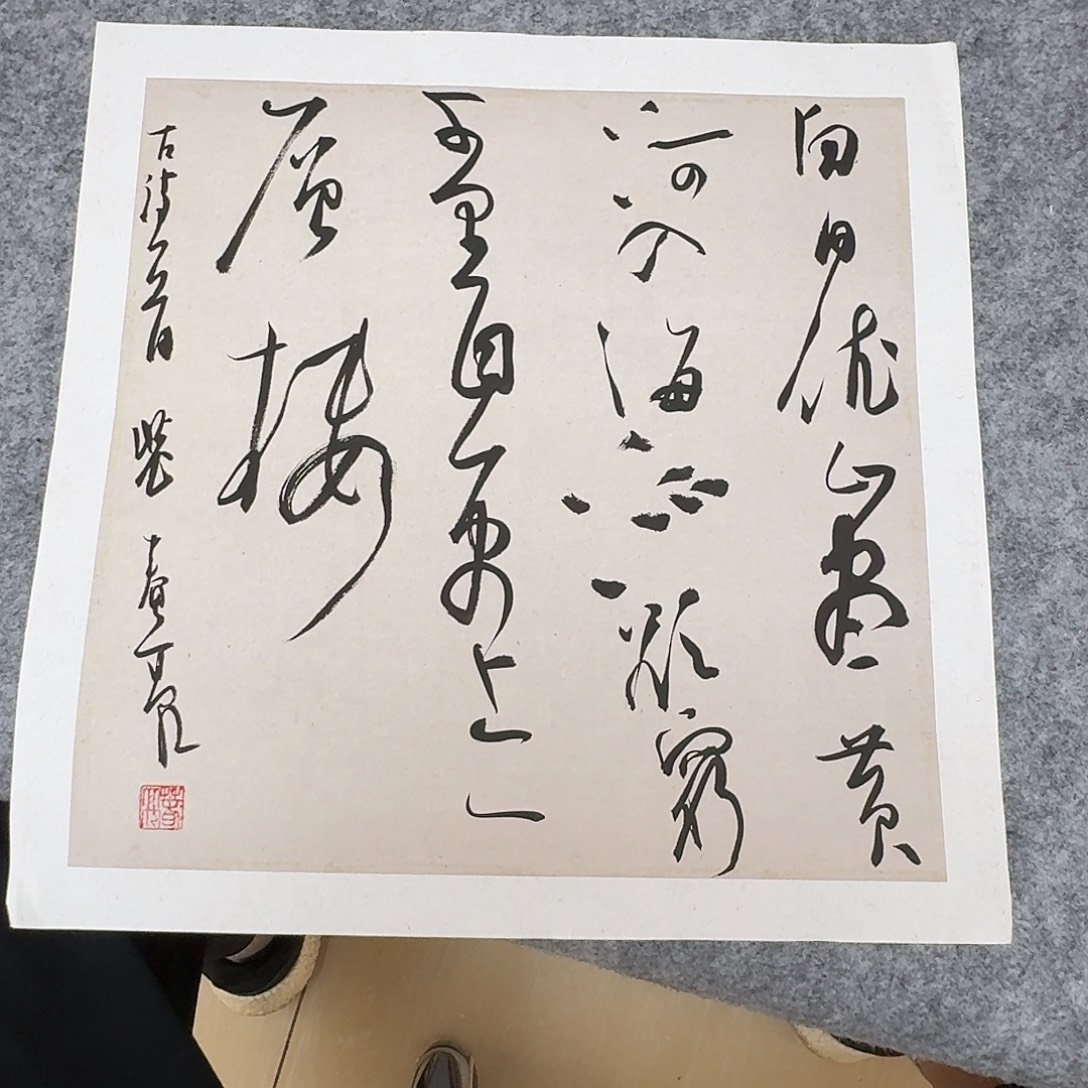 白日依山盡黃
河入海流欲窮
千里目更上一
層樓
古詩一首 春